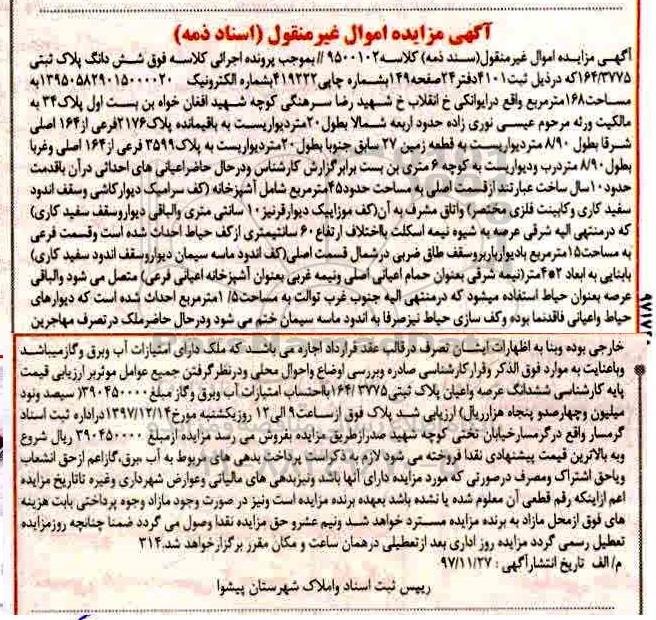 آگهی مزایده اموال غیرمنقول (اسناد ذمه)
آگهی مزایده اموال غیرمنقول(سند ذمه) کلاسه۹۵۰۰۱۰۲ // بموجب پرونده اجرائی کلاسه فوق شش دانگ پلاک ثبتی
۱۶۴/۳۷۷۵که درذیل ثبت۴۱۰۱دفتر۲۴صفحه۱۴۹بشماره چاپی۴۱۹۲۲۲بشماره الکترونیک ۱۳۹۵۰۵۸۲۹۰۱۵۰۰۰۰۲۰به
مساحت۱۶۸مترمربع واقع درایوانکی خ انقلاب خ شهید رضا سرهنگی کوچه شهید افغان خواه بن بست اول پلاک۳۴ به
مالکیت ورثه مرحوم عیسی نوری زاده حدود اربعه شمالا بطول۲۰متردیواریست به باقیمانده پلاک۲۱۷۶فرعی از۱۶۴ اصلی
شرقا بطول ۸/۹۰ متردیواریست به قطعه زمین ۲۷ سابق جنوبا بطول۲۰متردیواریست به پلاک۳۵۹۹ فرعی از۱۶۴ اصلی وغربا
بطول۸/۹۰ متردرب ودیواریست به کوچه ۶ متری بن بست برابرگزارش کارشناس ودرحال حاضراعیانی های احداثی درآن باقدمت
حدود۱۰سال ساخت عبارتند ازقسمت اصلی به مساحت حدود۴۵مترمربع شامل آشپزخانه (کف سرامیک دیوارکاشی وسقف اندود
سفید کاری وکابینت فلزی مختصر) واتاق مشرف به آن(کف موزاییک دیوارقرنیز۱۰ سانتی متری والباقی دیواروسقف سفید کاری)
که درمنتهی الیه شرقی عرصه به شیوه نیمه اسکلت بااختلاف ارتفاع۶۰ سانتیمتری ازکف حیاط احداث شده است وقسمت فرعی
به مساحت۱۵مترمربع بادیوارباربروسقف طاق ضربی درشمال قسمت اصلی(کف اندود ماسه سیمان دیواروسقف اندود سفید کاری)
بابنایی به ابعاد ۲*۵متر(نیمه شرقی بعنوان حمام اعیانی اصلی ونیمه غربی بعنوان آشپزخانه اعیانی فرعی) متصل می شود والباقی
عرصه بعنوان حیاط استفاده میشود که درمنتهی الیه جنوب غرب توالت به مساحت۱/۵مترمربع احداث شده است که دیوارهای
حیاط واعیانی فاقدنما بوده وکف سازی حیاط نیزصرفا به اندود ماسه سیمان ختم می شود ودرحال حاضرملک درتصرف مهاجرین
خارجی بوده وبنا به اظهارات ایشان تصرف درقالب عقد قرارداد اجاره می باشد که ملک دارای امتیازات آب وبرق وگازمیباشد
وباعنایت به موارد فوق الذکر وقرارکارشناسی صادره وبررسی اوضاع واحوال محلی ودرنظرگرفتن جمیع عوامل موثربر ارزیابی قیمت
پایه کارشناسی ششدانگ عرصه واعیان پلاک ثبتی ۱۶۴/۳۷۷۵بااحتساب امتیازات آب وبرق وگاز مبلغ۳۹۰۴۵۰۰۰۰( سیصد ونود
میلیون وچهارصدو پنجاه هزارریال) ارزیابی شد پلاک فوق ازساعت۹ الی۱۲ روزیکشنبه مورخ۱۳۹۷/۱۲/۱۴دراداره ثبت اسناد
گرمسار واقع درگرمسارخیابان تختی کوچه شهید صدرازطریق مزایده بفروش می رسد مزایده ازمبلغ ۳۹۰۴۵۰۰۰۰ ریال شروع
وبه بالاترین قیمت پیشنهادی نقدا فروخته می شود لازم به ذکراست پرداخت بدهی های مربوط به آب ،برق،گازاعم ازحق انشعاب
ویاحق اشتراک ومصرف درصورتی که مورد مزایده دارای آنها باشد ونیزبدهی های مالیاتی وعوارض شهرداری وغیره تاتاریخ مزایده
اعم ازاینکه رقم قطعی آن معلوم شده یا نشده باشد بعهده برنده مزایده است ونیز در صورت وجود مازاد وجوه پرداختی بابت هزینه
های فوق ازمحل مازاد به برنده مزایده مسترد خواهد شد ونیم عشرو حق مزایده نقدا وصول می گردد ضمنا چنانچه روزمزایده
تعطیل رسمی گردد مزایده روز اداری بعد ازتعطیلی درهمان ساعت و مکان مقرر برگزارخواهد شد.۳۱۴
م/ الف تاریخ انتشارآگهی : ۹۷/۱۱/۲۷
رییس ثبت اسناد واملاک شهرستان پیشوا